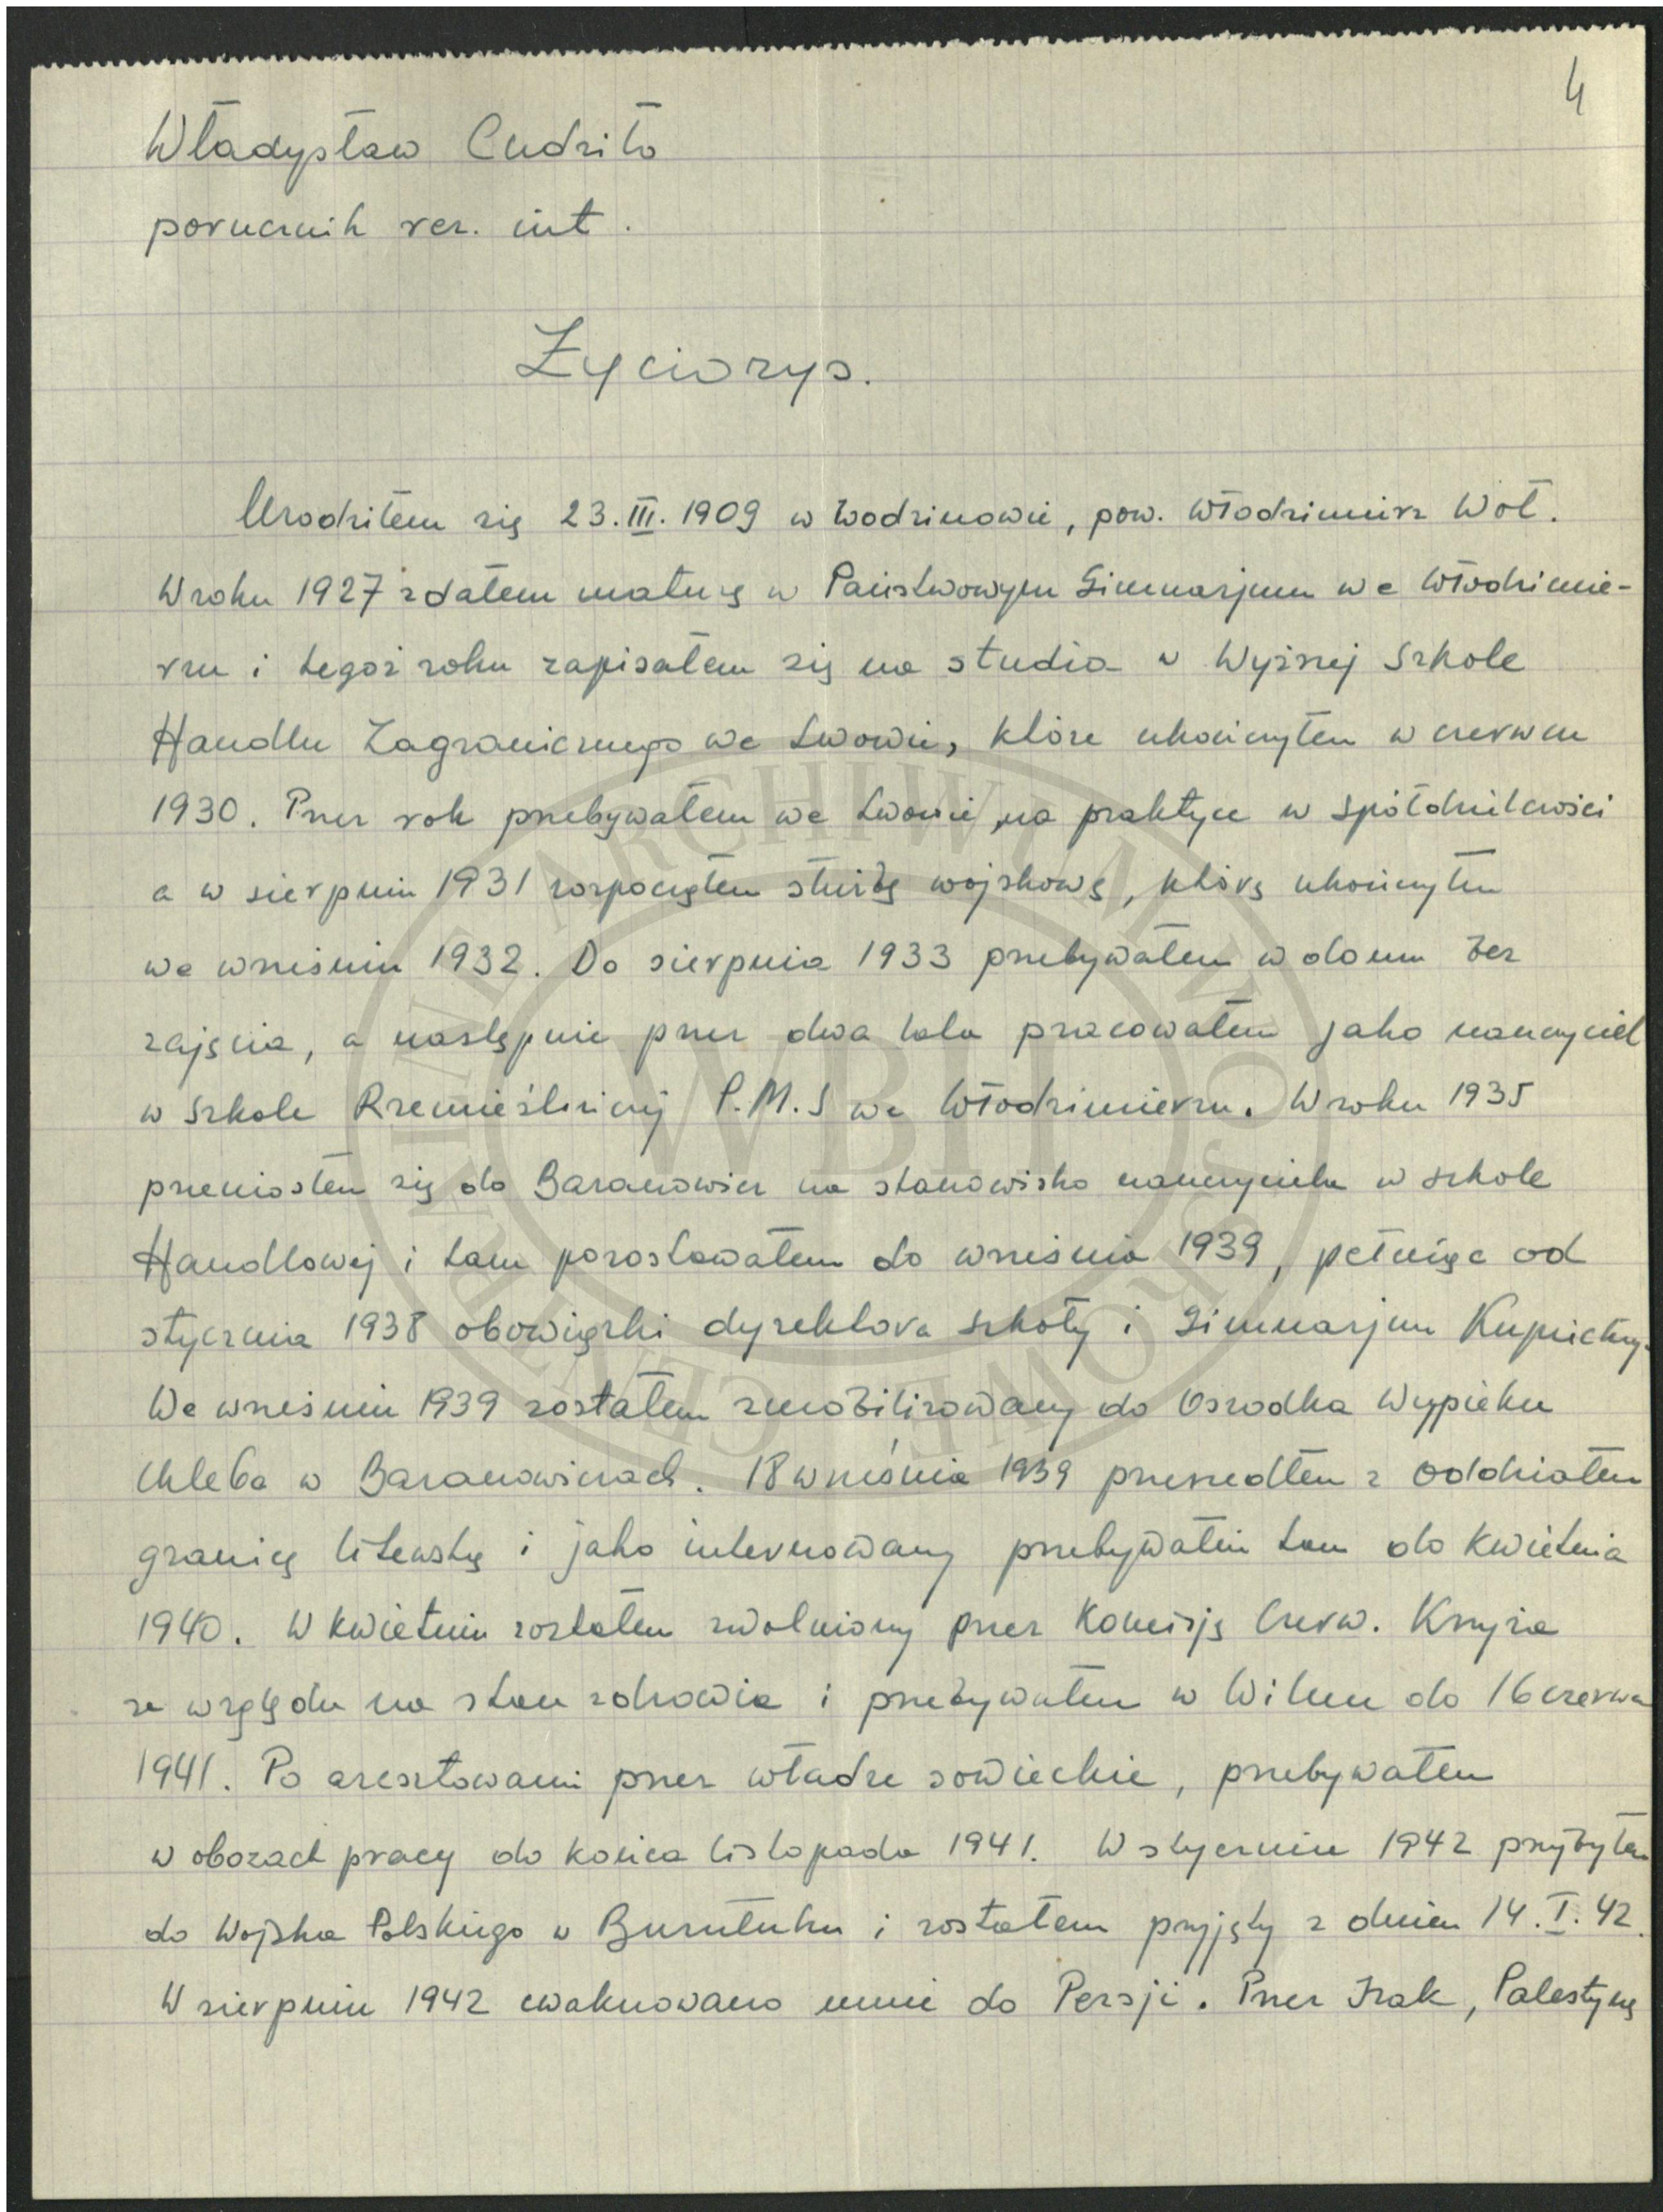 4
Władysław Cudziło
porucznik rez. int.
Życiorys.
Urodziłem się 23.III.1909 w Wodzinowie, pow. Włodzimierz Woł.
W roku 1927 zdałem maturę w Państwowym Gimnazjum we Włodzimie-
rzu i tegoż roku zapisałem się na studia w Wyższej Szkole
Handlu Zagranicznego we Lwowie, które ukończyłem w czerwcu
1930. Przez rok przebywałem we Lwowie, na praktyce w spółdzielczości
a w sierpniu 1931 rozpocząłem służbę wojskową, którą ukończyłem
we wrześniu 1932. Do sierpnia 1933 przebywałem w domu bez
zajęcia, a następnie przez dwa lata pracowałem jako nauczyciel
w Szkole Rzemieślniczej P.M.S we Włodzimierzu. W roku 1935
przeniosłem się do Baranowicz na stanowisko nauczyciela w szkole
Handlowej i tam pozostawałem do września 1939, pełniąc od
stycznia 1938 obowiązki dyrektora szkoły i Gimnazjum Kupieckiego.
We wrześniu 1939 zostałem zmobilizowany do Ośrodka Wypieku
Chleba w Baranowiczach. 18 września 1939 przeszedłem z oddziałem
granicę litewską i jako internowany przebywałem tam do kwietnia
1940. W kwietniu zostałem zwolniony przez Komisję Czerw. Krzyża
ze względu na stan zdrowia i przebywałem w Wilnie do 16 czerwca
1941. Po aresztowaniu przez władze sowieckie, przebywałem
w obozach pracy do końca listopada 1941. W styczniu 1942 przybyłem
do Wojska Polskiego w Buzułuku i zostałem przyjęty z dniem 14.I.42.
W sierpniu 1942 ewakuowano mnie do Persji. Przez Irak, Palestynę
CENTRALNE ARCHIWUM WOJSKOWE
WBH